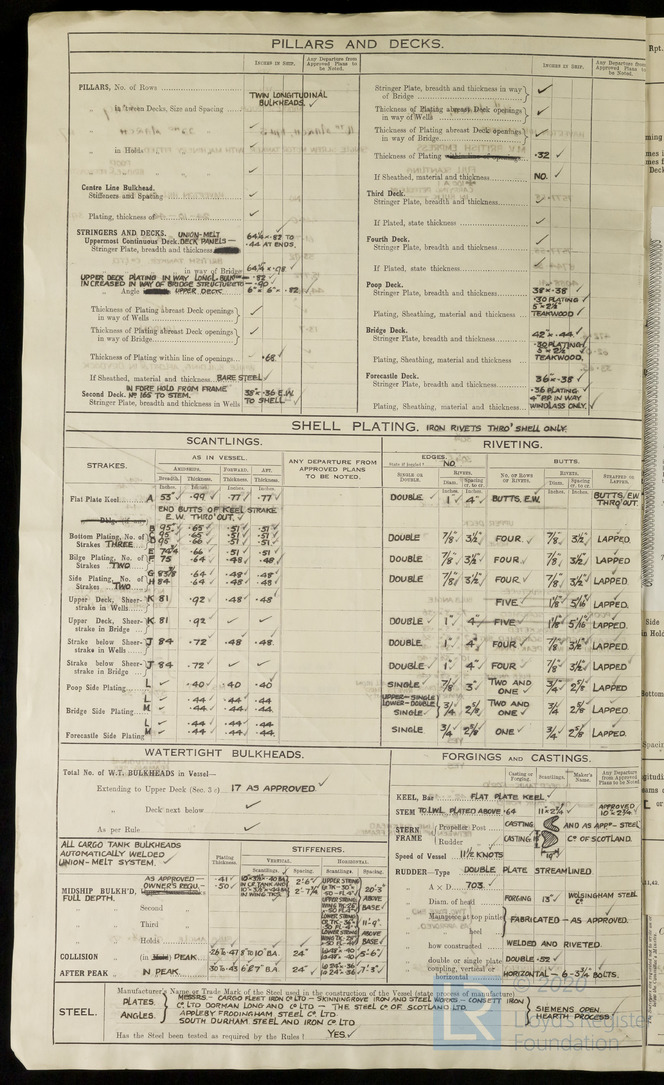 PILLARS AND DECKS.
INCHES IN SHIP.
Any Departure from Approved Plans to be Noted.
PILLARS, No. of Rows
TWIN LONGITUDINAL BULKHEADS. ✓
in 'tween Decks, Size and Spacing
" in Holds
Centre Line Bulkhead.
Stiffeners and Spacing
Plating, thickness of
STRINGERS AND DECKS. UNION-MELT
Uppermost Continuous Deck. DECK PANELS—
Stringer Plate, breadth and thickness
.44 AT ENDS.
in way of Bridge
UPPER DECK PLATING IN WAY LONGL. BULKHDS
INCREASED IN WAY OF BRIDGE STRUCTURE TO .90
Angle UPPER DECK 6" × 6" × .82
Thickness of Plating abreast Deck openings in way of Wells
Thickness of Plating abreast Deck openings in way of Bridge
Thickness of Plating within line of openings .68
If Sheathed, material and thickness BARE STEEL ✓
IN FORE HOLD FROM FRAME
Second Deck. No 165 TO STEM.
Stringer Plate, breadth and thickness in Wells 38" × .36 E.W. TO SHELL
INCHES IN SHIP.
Any Departure from Approved Plans to be Noted.
Stringer Plate, breadth and thickness in way of Bridge ✓
Thickness of Plating abreast Deck openings in way of Wells ✓
Thickness of Plating abreast Deck openings in way of Bridge ✓
Thickness of Plating within line of openings .32 ✓
If Sheathed, material and thickness NO. ✓
Third Deck.
Stringer Plate, breadth and thickness ✓
If Plated, state thickness ✓
Fourth Deck.
Stringer Plate, breadth and thickness ✓
If Plated, state thickness ✓
Poop Deck.
Stringer Plate, breadth and thickness 38" × .38 ✓
.30 PLATING
5" × 2½"
Plating, Sheathing, material and thickness TEAKWOOD ✓
Bridge Deck.
Stringer Plate, breadth and thickness 42" × .44 ✓
.30 PLATING
5" × 2½
Plating, Sheathing, material and thickness TEAKWOOD.
Forecastle Deck.
Stringer Plate, breadth and thickness 36" × .38 ✓
.36 PLATING
4" P.P. IN WAY
Plating, Sheathing, material and thickness WINDLASS ONLY.
SHELL PLATING. IRON RIVETS THRO' SHELL ONLY.
SCANTLINGS.
RIVETING.
STRAKES.
AS IN VESSEL.
AMIDSHIPS. FORWARD. AFT.
Breadth. Thickness. Thickness. Thickness.
ANY DEPARTURE FROM APPROVED PLANS TO BE NOTED.
EDGES.
State if Joggled? NO
SINGLE OR DOUBLE
RIVETS.
Diam. Spacing cr. to cr.
BUTTS.
NO. OF ROWS OF RIVETS.
RIVETS.
Diam. Spacing cr. to cr.
STRAPPED OR LAPPED.
Flat Plate Keel A 53 .99 .77 .77 DOUBLE 1" 4" BUTTS E.W. BUTTS E.W. THRO'OUT
END BUTTS OF KEEL STRAKE E.W. THRO'OUT.
Bottom Plating, No. of Strakes THREE
B 95" .65 .51 .51
95 .65 .51 .51
95 .66 .51 .51
DOUBLE 7/8 3½ FOUR 7/8 3½ LAPPED
Bilge Plating, No. of Strakes TWO
E 74¼ .66 .51 .51
F 75 .64 .48 .48
DOUBLE 7/8 3½ FOUR 7/8 3½ LAPPED
Side Plating, No. of Strakes TWO
G 83⅝ .64 .48 .48
H 84 .64 .48 .48
DOUBLE 7/8 3½ FOUR 7/8 3½ LAPPED.
Upper Deck, Sheerstrake in Wells K 81 .92 .48 .48 FIVE 1⅛ 5 1/16 LAPPED.
Upper Deck, Sheerstrake in Bridge K 81 .92 DOUBLE 1" 4" FIVE 1⅛ 5 1/16 LAPPED.
Strake below Sheerstrake in Wells J 84 .72 .48 .48 DOUBLE 1" 4" FOUR 7/8 3½ LAPPED.
Strake below Sheerstrake in Bridge J 84 .72 DOUBLE 1 4 FOUR 7/8 3½ LAPPED
Poop Side Plating L .40 .40 .40 SINGLE 7/8 3" TWO AND ONE ¾ 2⅝ LAPPED
Bridge Side Plating
L .44 .44 .44
M .44 .44 .44
UPPER-SINGLE
LOWER-DOUBLE
SINGLE ¾ 2⅝ TWO AND ONE ¾ 2⅝ LAPPED
Forecastle Side Plating
L .44 .44 .44
M .44 .44 .44
SINGLE ¾ 2⅝ ONE ¾ 2⅝ LAPPED.
WATERTIGHT BULKHEADS.
Total No. of W.T. BULKHEADS in Vessel—
Extending to Upper Deck (Sec. 3 c) 17 AS APPROVED ✓
" Deck next below ✓
As per Rule ✓
ALL CARGO TANK BULKHEADS
AUTOMATICALLY WELDED
UNION-MELT SYSTEM.
Plating Thickness.
STIFFENERS.
VERTICAL. HORIZONTAL.
Scantlings. Spacing. Scantlings. Spacing.
MIDSHIP BULKH'D, FULL DEPTH.
AS APPROVED
OWNER'S REQU.
.41
.50
20'-3" ABOVE BASE
Second
Third
11'-9" ABOVE BASE
Holds
COLLISION (in PEAK. 24" 5'-6"
AFTER PEAK IN PEAK. 24" 7'-3"
FORGINGS AND CASTINGS.
Casting or Forging. Scantlings. Maker's Name. Any Departure from Approved Plans to be Noted.
KEEL, Bar FLAT PLATE KEEL ✓
STEM TO LWL. PLATED ABOVE .64 11 × 2¾ APPROVED 10" × 2¾"
STERN FRAME
Propeller Post CASTING AND AS APPD— STEEL
Rudder CASTING Co OF SCOTLAND.
Speed of Vessel 11½ KNOTS
RUDDER—Type DOUBLE PLATE STREAMLINED
A × D 703. ✓
Diam. of head FORGING 13" WOLSINGHAM STEEL Co
Mainpiece at top pintle
" heel
FABRICATED — AS APPROVED.
how constructed WELDED AND RIVETED.
double or single plate DOUBLE .52 ✓
coupling, vertical or horizontal HORIZONTAL — 6 - 3¾ BOLTS.
STEEL.
Manufacturer's Name or Trade Mark of the Steel used in the construction of the Vessel (state process of manufacture)
PLATES. ANGLES.
MESSRS. — CARGO FLEET IRON Co LTD — SKINNINGROVE IRON AND STEEL WORKS — CONSETT IRON
Co LTD DORMAN LONG AND Co LTD — THE STEEL Co OF SCOTLAND LTD
APPLEBY FRODINGHAM STEEL Co LTD.
SOUTH DURHAM STEEL AND IRON Co LTD
SIEMENS OPEN HEARTH PROCESS
Has the Steel been tested as required by the Rules? YES ✓
© 2020
LR
Lloyd's Register
Foundation